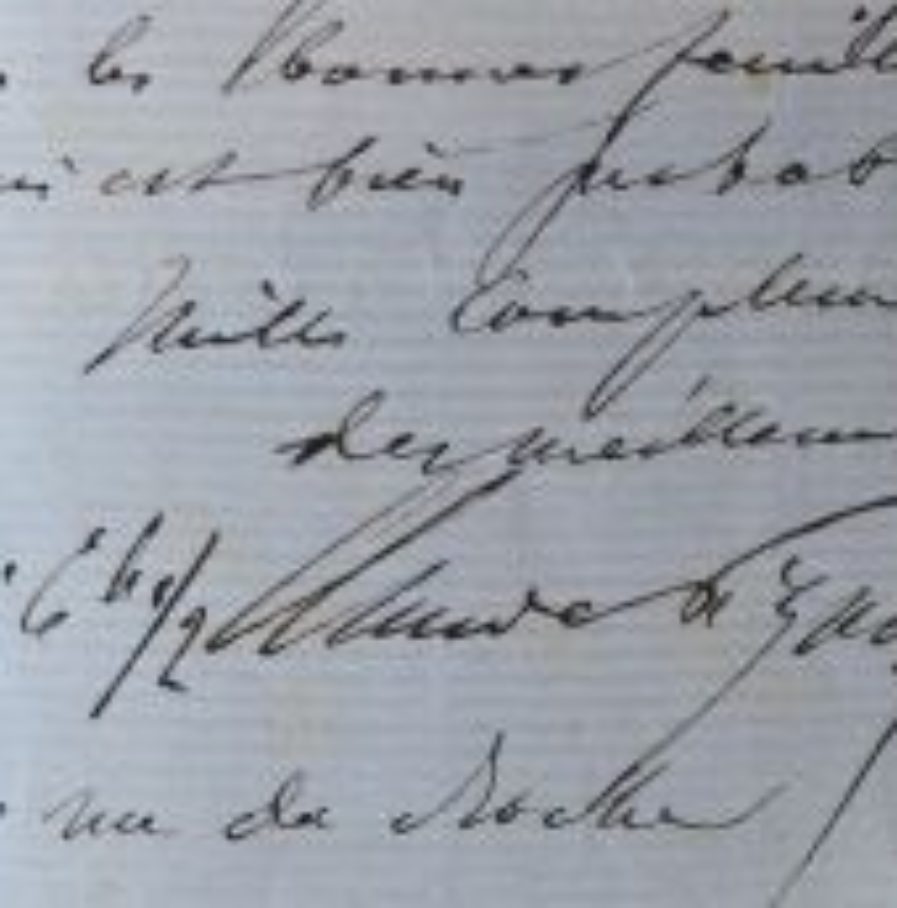 les bonnes feuill
est bien probab
Mille Complim
des meilleur
6 h 1/2
rue du Rocher